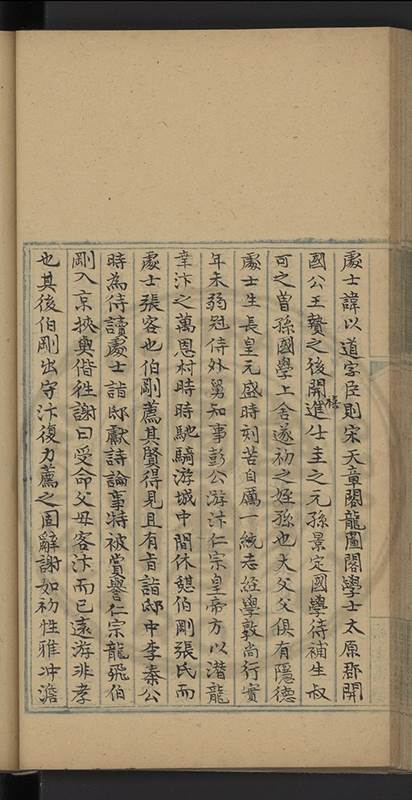 處士諱以道字臣則宋天章閣龍圖閣學士太原郡開
國公王贄之後開進脩仕主之元孫景定國學待補生叔
可之曽孫國學上舍遂初之姪孫也大父父俱有隱德
處士生長皇元盛時刻苦自厲一統志經學敦尚行實
年未弱冠侍外舅知事彭公游汴仁宗皇帝方以潛龍
幸汴之萬恩村時時馳騎游城中間休憇伯剛張氏而
處士張客也伯剛薦其賢得見且有肯詣邸中李秦公
時為侍讀處士詣邸獻詩論事特被賞譽仁宗龍飛伯
剛入京挾輿偕徃謝曰受命父母客汴而已逺游非孝
也其後伯剛出守汴復力薦之固辭謝如初性雅冲澹